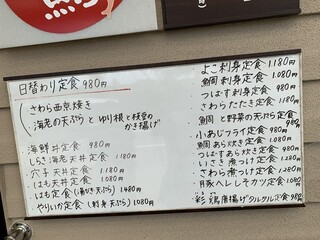 日替わり定食 980円
さわら西京焼き
海老の天ぷらとゆり根と枝豆の
かき揚げ
海鮮丼定食 980円
しらさ海老天丼定食 1180円
穴子天丼定食 1180円
はも天丼定食 1080円
はも定食 1480円
やりいか定食(刺身天ぷら) 1080円
よこ刺身定食 1180円
鯛刺身定食 1,080円
つばす刺身定食 980円
さわらたたき定食 1180円
鯛と野菜の天ぷら定食
小あじフライ定食 980円
鯛あら炊き定食 1080円
つばすあら炊き定食 980円
いさき煮つけ定食 1,080円
さわら煮つけ定食 1,280円
豚ヘレしそカツ定食 1,080円
彩鶏唐揚げタルタル定食 980円